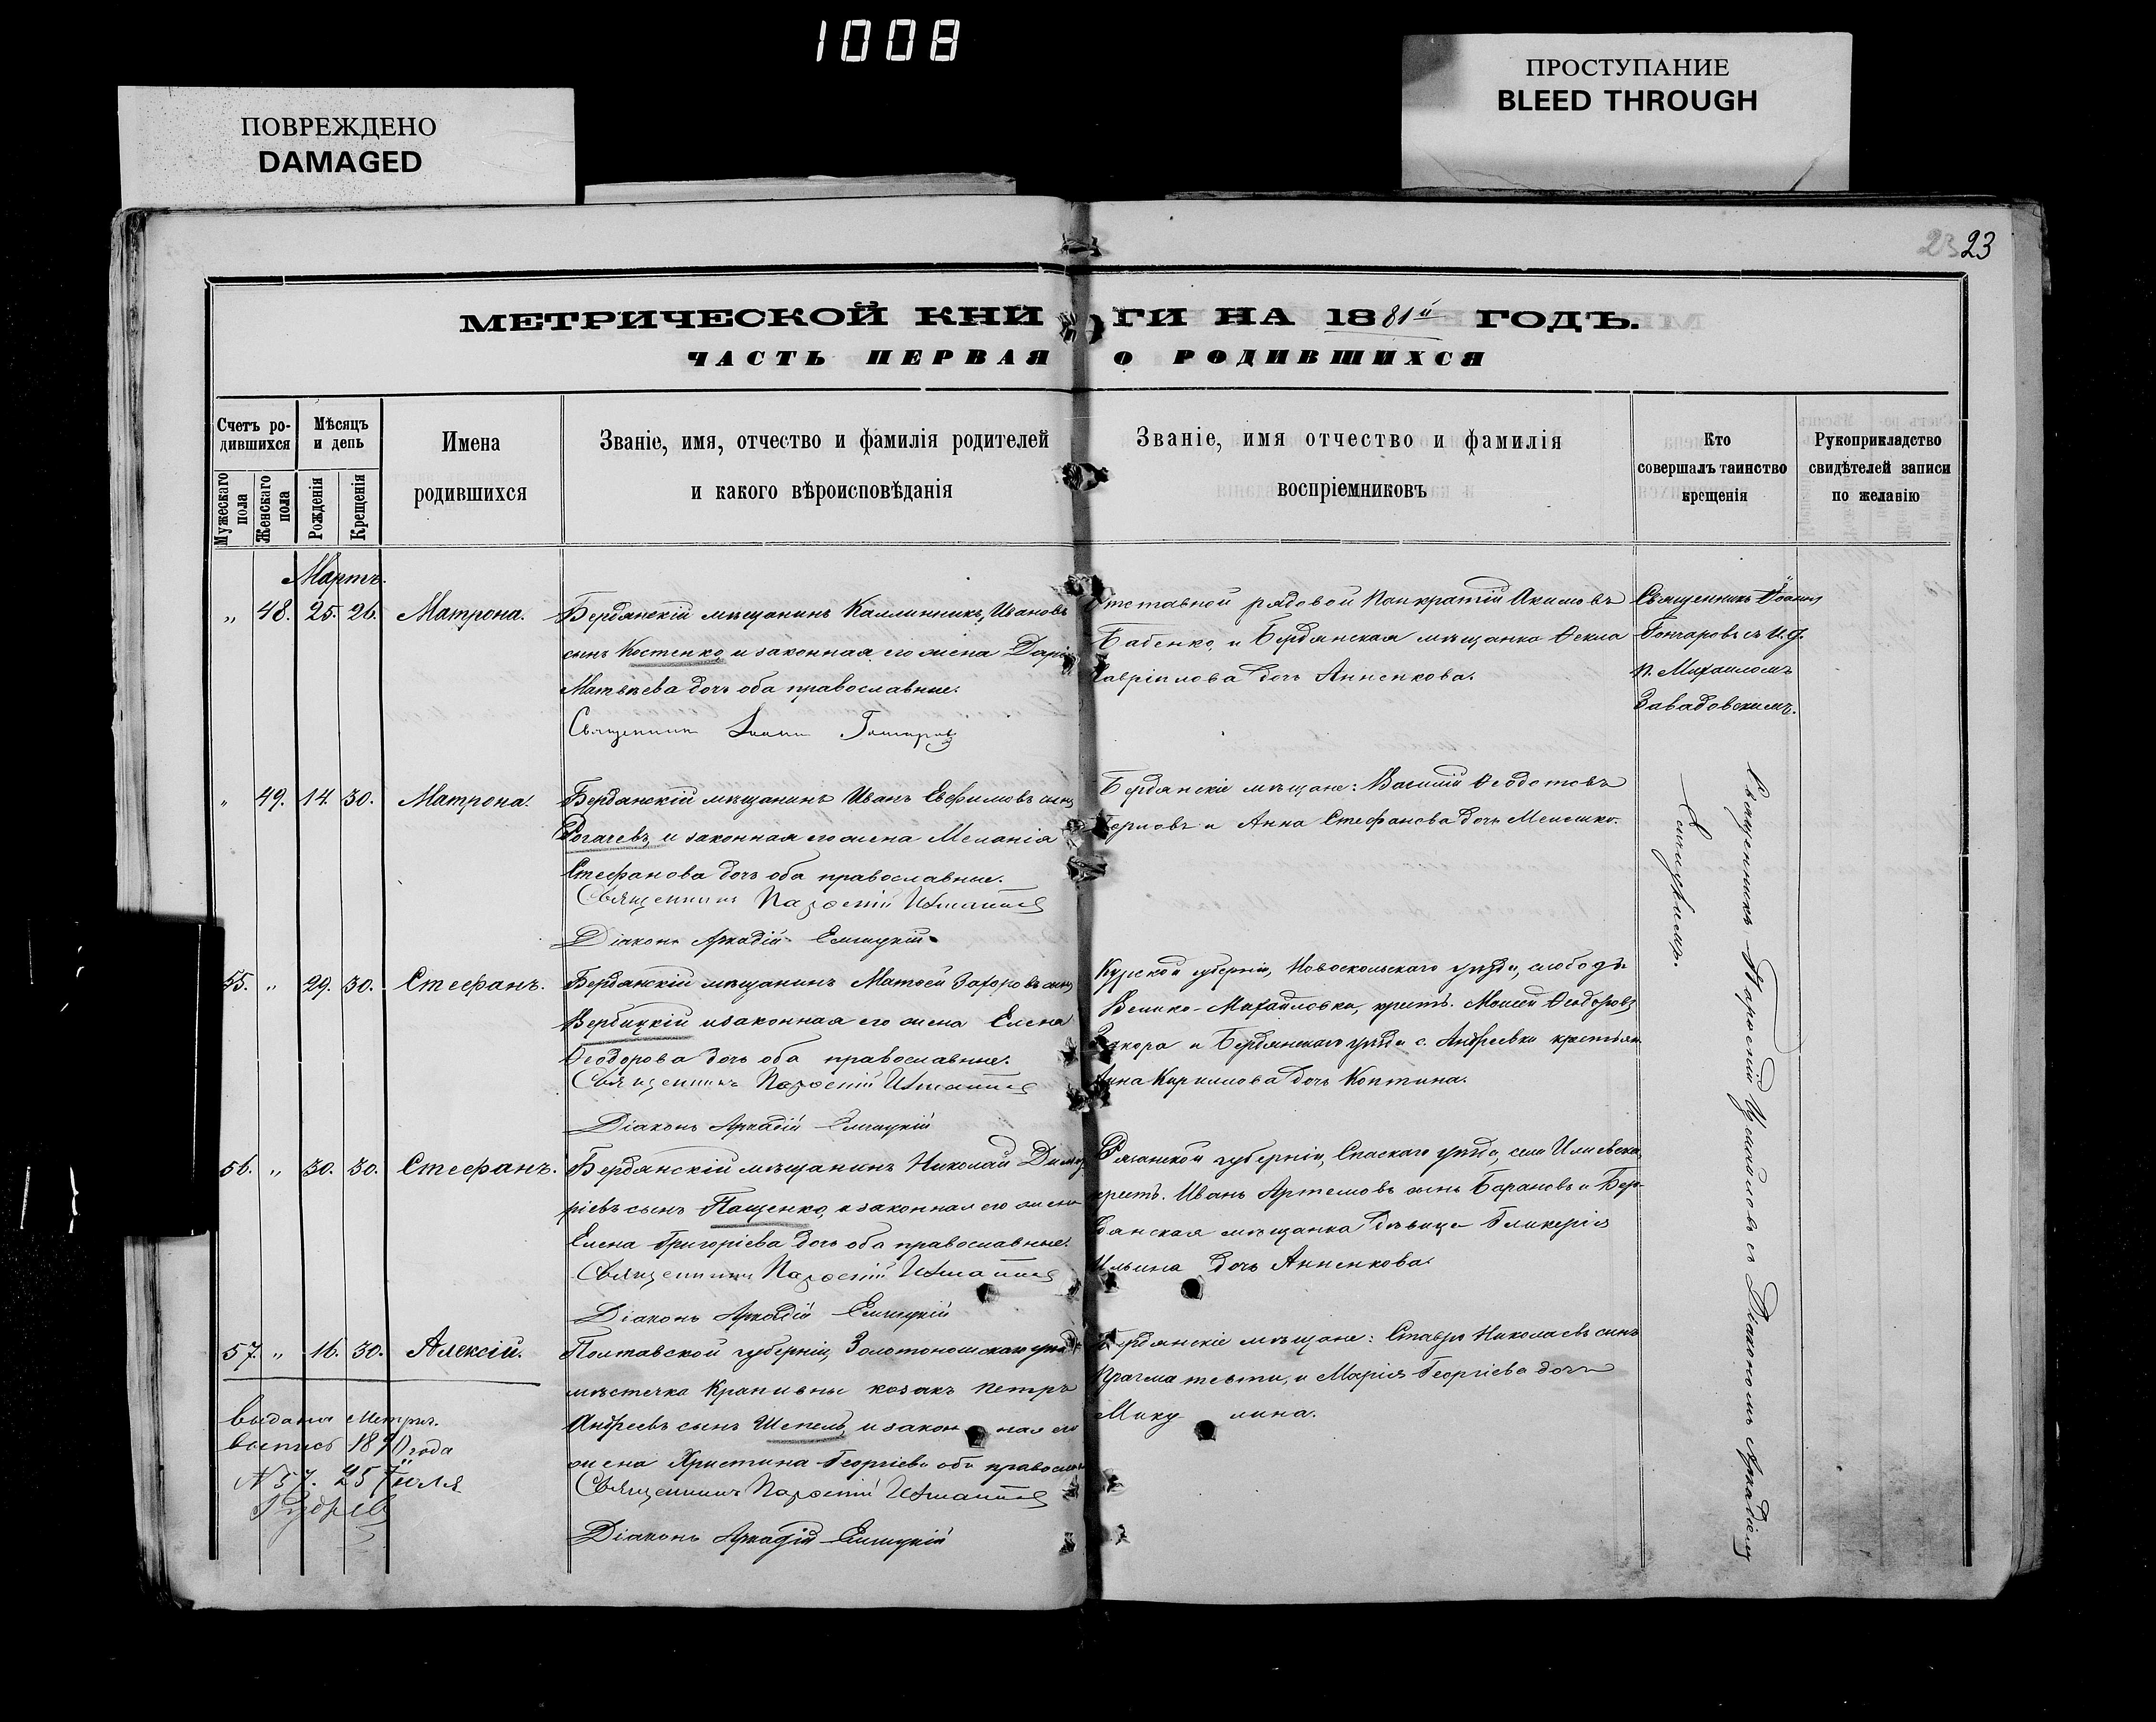 1008
ПОВРЕЖДЕНО
DAMAGED
ПРОСТУПАНИЕ
BLEED THROUGH
23 23
МЕТРИЧЕСКОЙ КНИГИ НА 1881й ГОДЪ.
ЧАСТЬ ПЕРВАЯ О РОДИВШИХСЯ
Счетъ ро-
дившихся
Мужескаго пола
Женскаго пола
Мѣсяцъ
и день
Рожденія
Крещенія
Имена
родившихся
Званіе, имя, отчество и фамилія родителей
и какого вѣроисповѣданія
Званіе, имя отчество и фамилія
воспріемниковъ
Кто
совершалъ таинство
крещенія
Рукоприкладство
свидѣтелей записи
по желанію
Мартъ.
„ 48. 25. 26. Матрона.
Бердянскій мѣщанинъ Каллинникъ Ивановъ
сынъ Костенко и законная его жена Дарія
Матвѣева дочь оба православные.
Священникъ Іоаннъ Гончаровъ
Отставной рядовой Панкратій Акимовъ
Бабенко, и Бердянская мѣщанка Ѳекла
Гавріилова дочь Анненкова.
Священникъ Іоаннъ
Гончаровъ съ И. д.
п. Михаиломъ
Завадовскимъ.
„ 49. 14. 30. Матрона.
Бердянскій мѣщанинъ Иванъ Евфимовъ сынъ
Рогачевъ, и законная его жена Меланія
Стефанова дочь оба православные.
Священникъ Парѳеній
Діаконъ Аркадій Елчицкій
Бердянскіе мѣщане: Василій Ѳеодотовъ
и Анна Стефанова дочь
Священникъ Парѳеній Измаиловъ съ Діакономъ Аркадіемъ
Елчицкимъ.
55. „ 29. 30. Стефанъ.
Бердянскій мѣщанинъ Матѳей Захаровъ сынъ
Вербицкій и законная его жена Елена
Ѳеодорова дочь оба православные.
Священникъ Парѳеній
Діаконъ Аркадій Елчицкій
Курской губерніи, Новоскольскаго уѣзда, слободы
Велико-Михайловка, крест. Моисей Ѳеодоровъ
и Бердянскаго уѣзда с. Андреевки крестьян.
Анна Кирилова дочь Коптина.
56. „ 30. 30. Стефанъ.
Бердянскій мѣщанинъ Николай Димит-
ріевъ сынъ Пащенко, и законная его жена
Елена Григоріева дочь оба православные.
Священникъ Парѳеній
Діаконъ Аркадій Елчицкій
Рязанской губерніи, Спаскаго уѣзда, села
крест. Иванъ Артемовъ сынъ Барановъ и Бер-
дянская мѣщанка дѣвица Гликерія
Ильина дочь Анненкова.
57. „ 16. 30. Алексій.
Полтавской губерніи, Золотоношскаго уѣзд.
мѣстечка Крапивны козакъ Петръ
Андреевъ сынъ Шепель, и законная его
жена Христина Георгіева оба православ.
Священникъ Парѳеній
Діаконъ Аркадій Елчицкій
Бердянскіе мѣщане: Ставръ Николаевъ сынъ
и Марія Георгіева дочь
Микулина.
Выдана Метрич.
выпись 1890 года
N 57. 25 Іюля